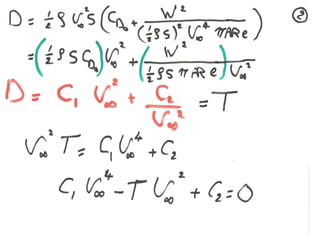 D = ½ ρ V∞² S (C_D₀ + W² / ((½ ρ S)² V∞⁴ π AR e)) ②
= (½ ρ S C_D₀) V∞² + (W² / (½ ρ S π AR e)) V∞²
D = C₁ V∞² + C₂ / V∞² = T
V∞² T = C₁ V∞⁴ + C₂
C₁ V∞⁴ - T V∞² + C₂ = 0